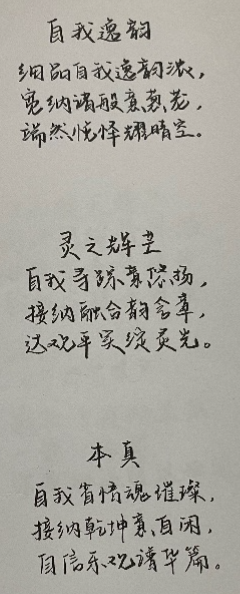 自我逸韵
细品自我逸韵浓，
宽纳诸般意葱茏，
端然恍怿耀晴空。
灵之辉芒
自我寻踪意悠扬，
接纳融合韵含章，
达观平实绽灵光。
本真
自我省悟魂璀璨，
接纳乾坤意自闲，
自信乐观谱华篇。